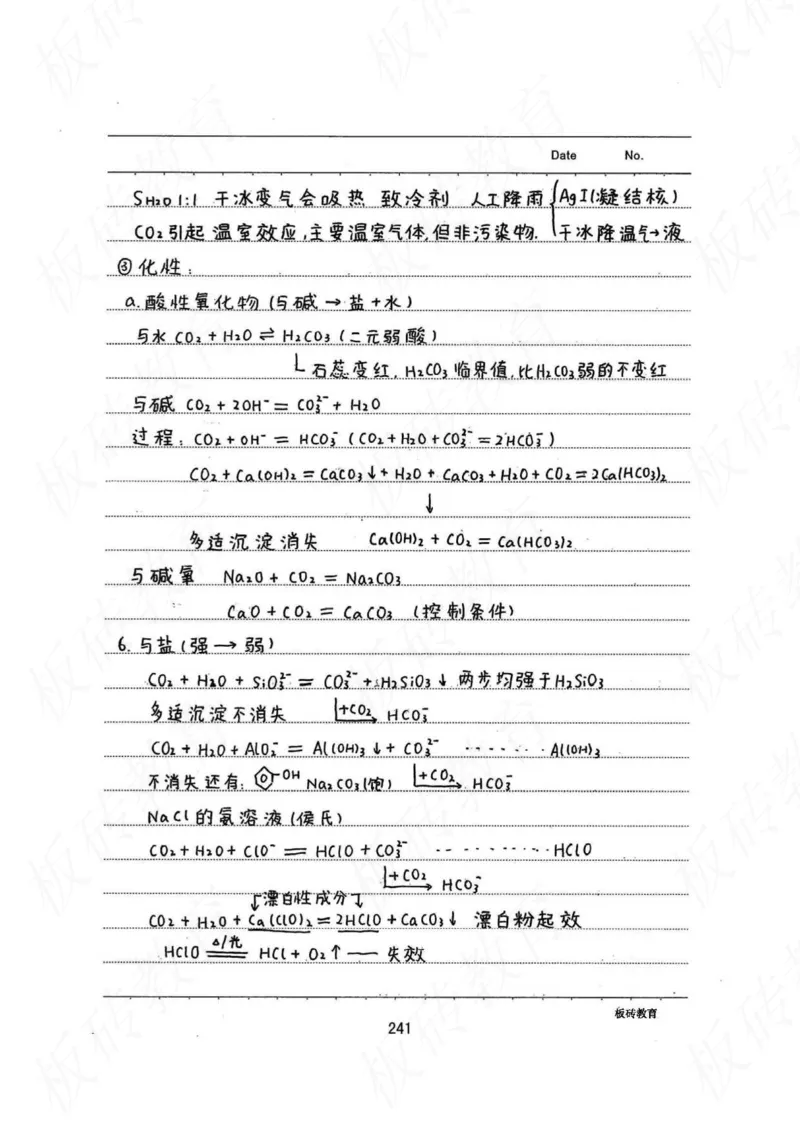 Date No.
SH₂O 1:1 干冰变气会吸热 致冷剂 人工降雨 { AgI(凝结核)
CO₂引起温室效应,主要温室气体,但非污染物. 干冰降温气→液
③化性:
a.酸性氧化物(与碱→盐+水)
与水 CO₂+H₂O⇌H₂CO₃(二元弱酸)
石蕊变红,H₂CO₃临界值,比H₂CO₃弱的不变红
与碱 CO₂+2OH⁻=CO₃²⁻+H₂O
过程:CO₂+OH⁻=HCO₃⁻(CO₂+H₂O+CO₃²⁻=2HCO₃⁻)
CO₂+Ca(OH)₂=CaCO₃↓+H₂O+CaCO₃+H₂O+CO₂=2Ca(HCO₃)₂
↓
多适沉淀消失 Ca(OH)₂+CO₂=Ca(HCO₃)₂
与碱氧 Na₂O+CO₂=Na₂CO₃
CaO+CO₂=CaCO₃(控制条件)
6.与盐(强→弱)
CO₂+H₂O+SiO₃²⁻=CO₃²⁻+H₂SiO₃↓ 两步均强于H₂SiO₃
多适沉淀不消失 +CO₂→ HCO₃⁻
CO₂+H₂O+AlO₂⁻=Al(OH)₃↓+CO₃²⁻ ······Al(OH)₃
不消失还有:-OH Na₂CO₃(饱) +CO₂→ HCO₃⁻
NaCl的氨溶液(侯氏)
CO₂+H₂O+ClO⁻=HClO+CO₃²⁻ ········HClO
+CO₂→ HCO₃⁻
↓漂白性成分↓
CO₂+H₂O+Ca(ClO)₂=2HClO+CaCO₃↓ 漂白粉起效
HClO =△/光= HCl+O₂↑—失效
板砖教育
241